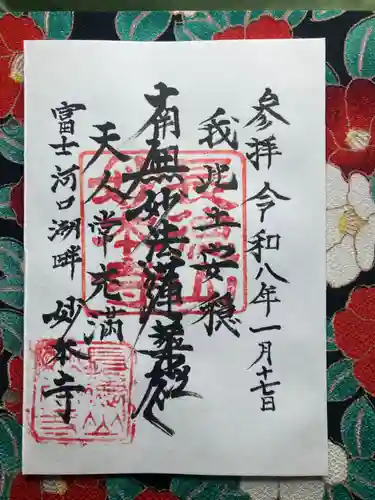 参拝 令和八年一月十七日
我此土安穏
南無妙法蓮華経
天人常充満
富士河口湖畔 妙本寺